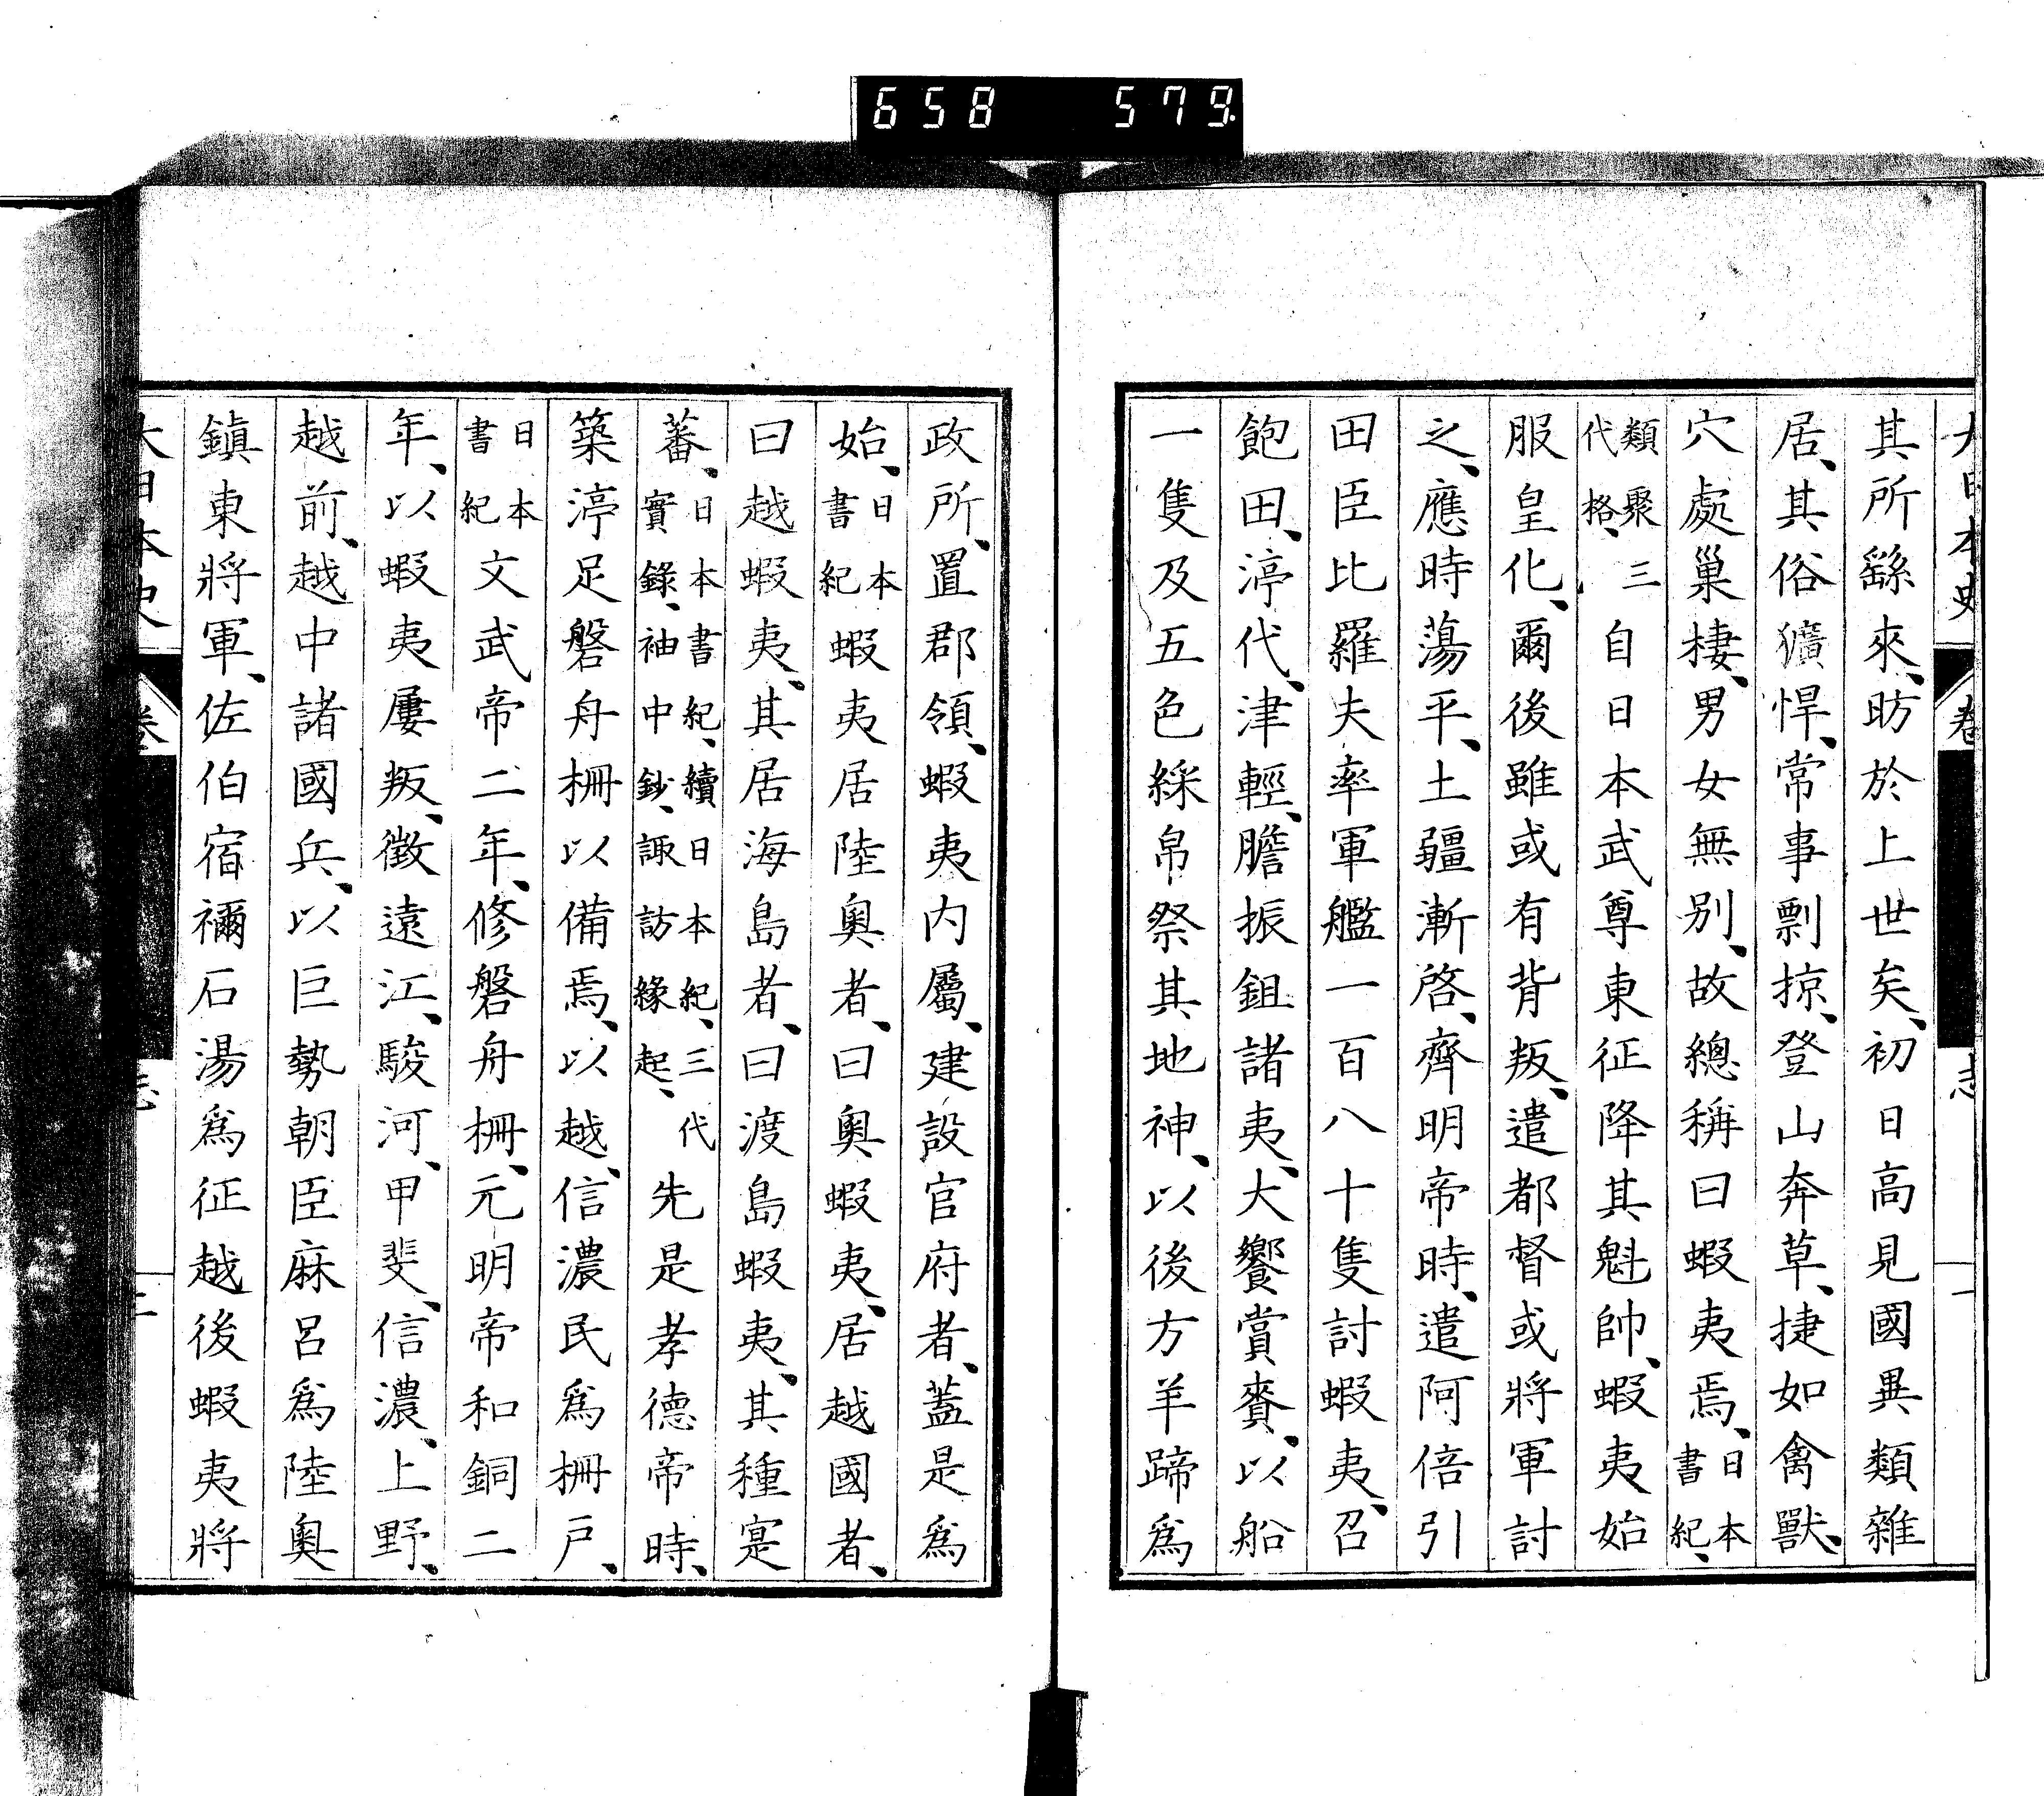 658 579
大日本史 卷 志 一
其所繇來、昉於上世矣、初日高見國異類雜
居、其俗獷悍、常事剽掠、登山奔草、捷如禽獸、
穴處巢棲、男女無別、故總稱曰蝦夷焉、日本書紀、
類聚三代格、自日本武尊東征降其魁帥、蝦夷始
服皇化、爾後雖或有背叛、遣都督或將軍討
之、應時蕩平、土疆漸啓、齊明帝時、遣阿倍引
田臣比羅夫率軍艦一百八十隻討蝦夷、召
飽田、渟代、津輕、膽振鉏諸夷、大饗賞賚、以船
一隻及五色綵帛祭其地神、以後方羊蹄爲
政所、置郡領、蝦夷内屬、建設官府者、蓋是爲
始、日本書紀蝦夷居陸奧者、曰奧蝦夷、居越國者、
曰越蝦夷、其居海島者、曰渡島蝦夷、其種寔
蕃、日本書紀、續日本紀、三代實錄、袖中鈔、諏訪緣起、先是孝德帝時、
築渟足磐舟柵以備焉、以越、信濃民爲柵戶、
日本書紀文武帝二年、修磐舟柵、元明帝和銅二
年、以蝦夷屢叛、徵遠江、駿河、甲斐、信濃、上野、
越前、越中諸國兵、以巨勢朝臣麻呂爲陸奧
鎭東將軍、佐伯宿禰石湯爲征越後蝦夷將
大日本史 卷 志 二